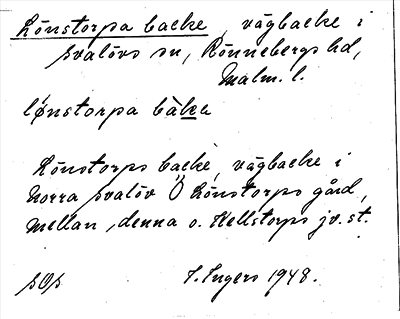 Lönstorpa backe, vägbacke i
Svalövs sn, Rönnebergs hd,
Malm. l.
lønstorpa bàkɛ
Lönstorps backe, vägbacke i
Norra Svalöv Ö Lönstorps gård,
mellan denna o. Kellstorps jv. st.
SOS I. Ingers 1948.